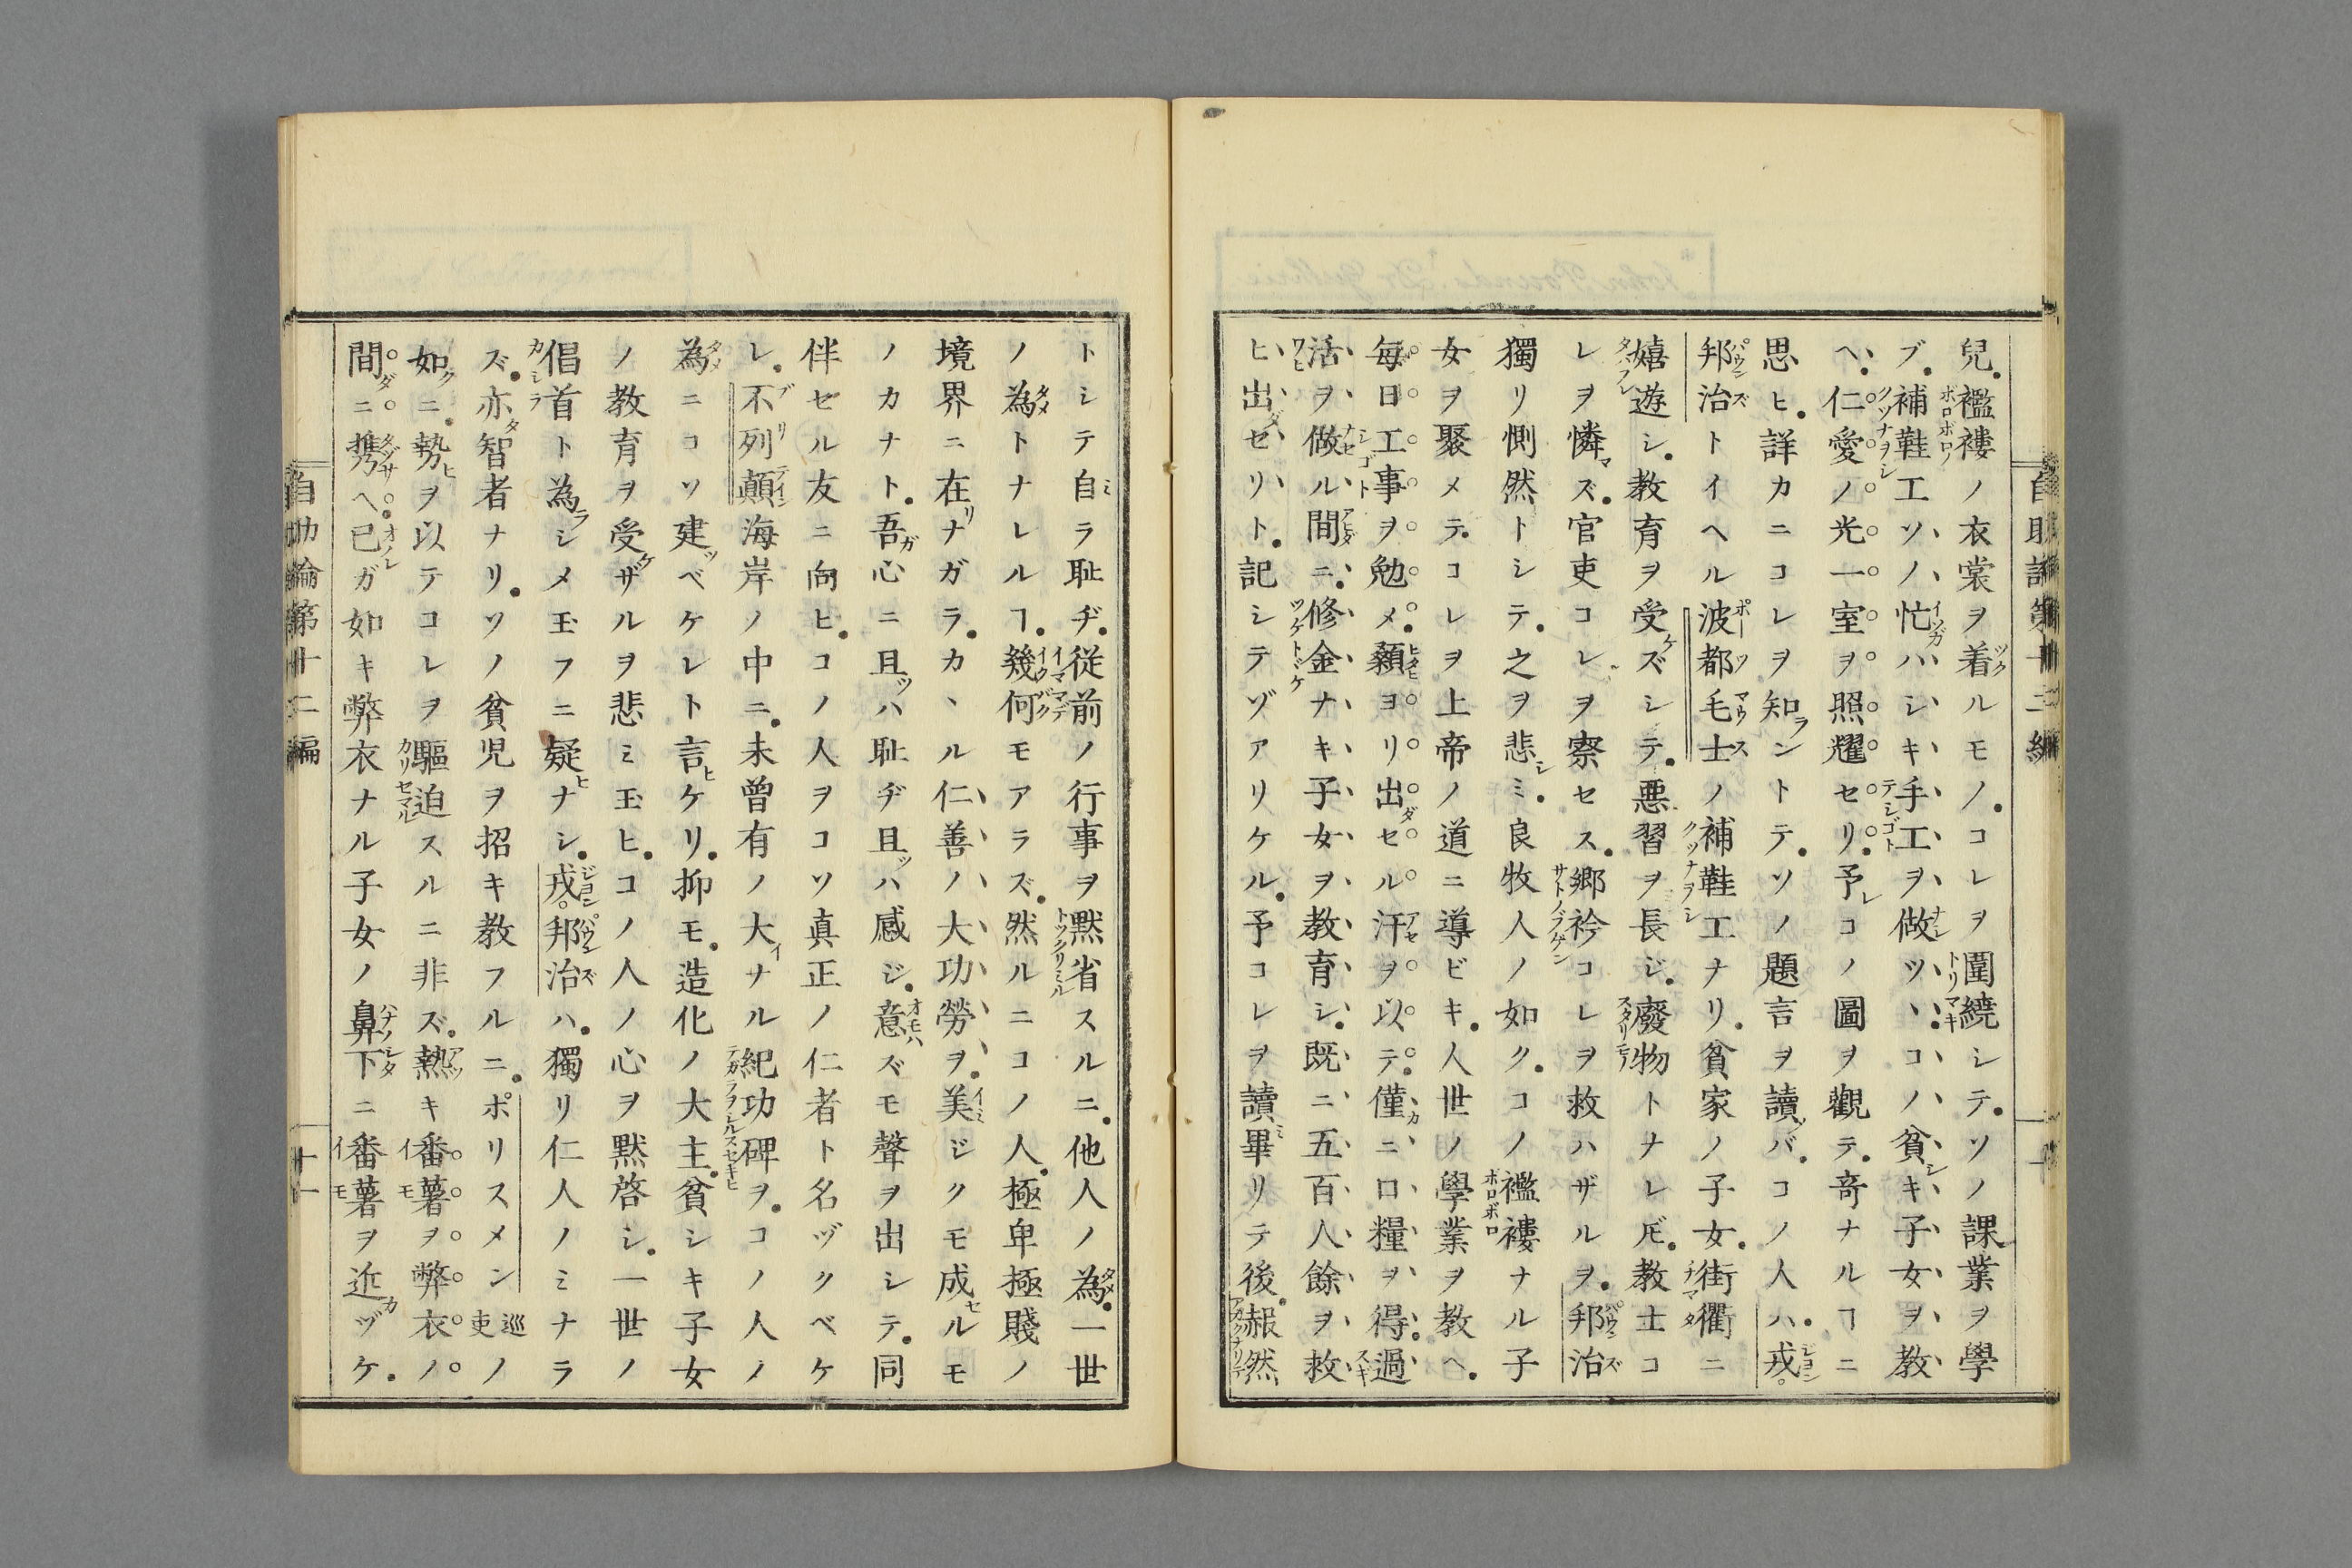 兒襤褸ノ衣裳ヲ着ルモノコレヲ圍繞シテソノ課業ヲ學
ブ補鞋工ソノ忙ハシキ手工ヲ做ツヽコノ貧キ子女ヲ教
ヘ仁愛ノ光一室ヲ照耀セリ予コノ圖ヲ觀テ奇ナルヿニ
思ヒ詳カニコレヲ知ントテソノ題言ヲ讀バコノ人ハ戎
邦治トイヘル波都毛士ノ補鞋工ナリ貧家ノ子女街衢ニ
嬉遊シ教育ヲ受ズシテ悪習ヲ長ジ廢物トナレ𪜈教士コ
レヲ憐ズ官吏コレヲ察セス郷衿コレヲ救ハザルヲ邦治
獨リ惻然トシテ之ヲ悲ミ良牧人ノ如クコノ襤褸ナル子
女ヲ聚メテコレヲ上帝ノ道ニ導ビキ人世ノ學業ヲ教ヘ
毎日工事ヲ勉メ顙ヨリ出セル汗ヲ以テ僅ニ口糧ヲ得過
活ヲ做ル間ニ修金ナキ子女ヲ教育シ既ニ五百人餘ヲ救
ヒ出セリト記シテゾアリケル予コレヲ讀畢リテ後赧然
トシテ自ラ耻ヂ従前ノ行事ヲ黙省スルニ他人ノ為一世
ノ為トナレルヿ幾何モアラズ然ルニコノ人極卑極賤ノ
境界ニ在ナガラカヽル仁善ノ大功勞ヲ美ジクモ成ルモ
ノカナト吾心ニ且ハ耻ヂ且ハ感ジ意ズモ聲ヲ出シテ同
伴セル友ニ向ヒコノ人ヲコソ真正ノ仁者ト名ヅクベケ
レ不列顛海岸ノ中ニ未曽有ノ大ナル紀功碑ヲコノ人ノ
為ニコソ建ベケレト言ケリ抑モ造化ノ大主貧シキ子女
ノ教育ヲ受ザルヲ悲ミ玉ヒコノ人ノ心ヲ黙啓シ一世ノ
倡首ト為シメ玉フニ疑ナシ戎邦治ハ獨リ仁人ノミナラ
ズ亦智者ナリソノ貧児ヲ招キ教フルニポリスメン巡吏ノ
如ニ勢ヲ以テコレヲ驅迫スルニ非ズ熱キ番薯ヲ弊衣ノ
間ニ携ヘ己ガ如キ弊衣ナル子女ノ鼻下ニ番薯ヲ近ヅケ
自助論第十二編
十一